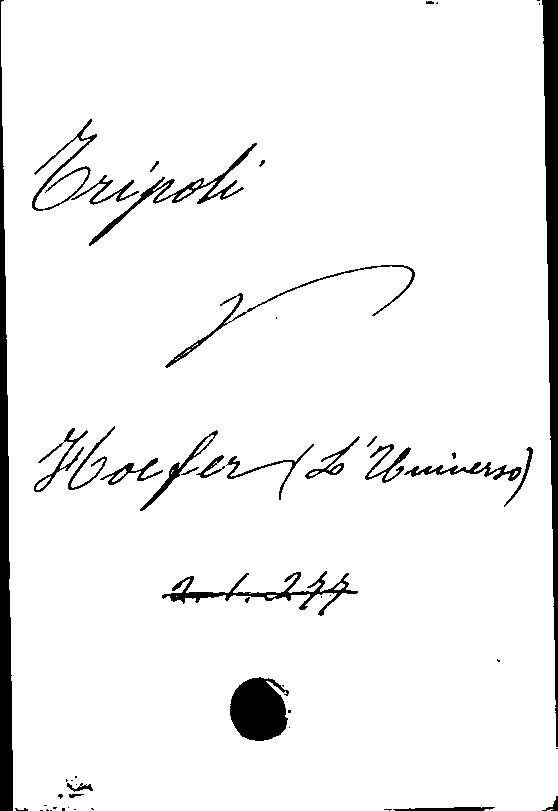 Tripoli
V
Hoefer (L'Universo)
2. 1. 277